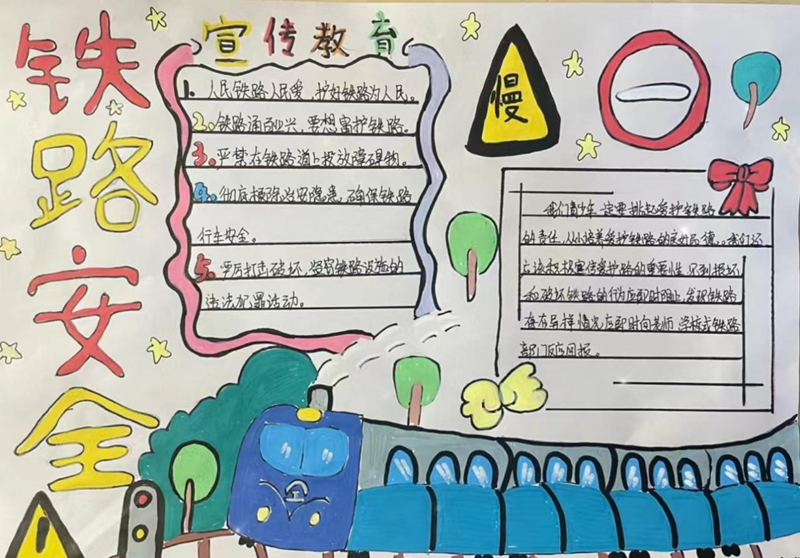 铁路安全
宣传教育
慢
1. 人民铁路人民爱,护好铁路为人民。
2. 铁路通百业兴,要想富护铁路.
3. 严禁在铁路道上摆放障碍物。
4. 彻底排除治安隐患,确保铁路
行车安全。
5. 严厉打击破坏、盗窃铁路设施的
违法犯罪活动。
我们青少年一定要担起爱护铁路
的责任,从小培养爱护铁路的良好品德。我们还
应该积极宣传爱护路的重要性,
和破坏铁路的行为应即时阻止,发现铁路
存在异样情况应即时向老师,学校或铁路
部门